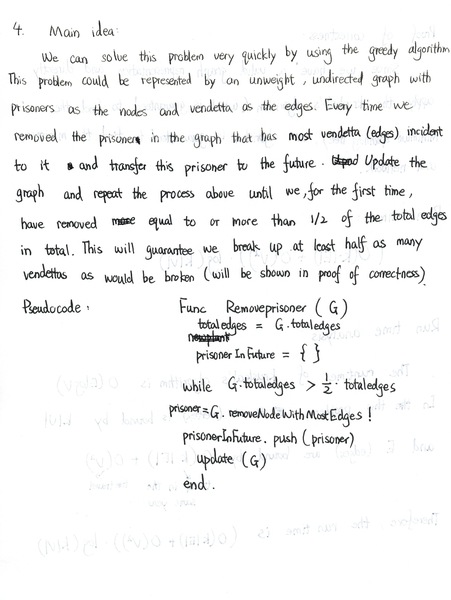 4. Main idea:
We can solve this problem very quickly by using the greedy algorithm
This problem could be represented by an unweight, undirected graph with
prisoners as the nodes and vendetta as the edges. Every time we
removed the prisoner in the graph that has most vendetta (edges) incident
to it and transfer this prisoner to the future. Update the
graph and repeat the process above until we, for the first time,
have removed equal to or more than 1/2 of the total edges
in total. This will guarantee we break up at least half as many
vendettas as would be broken (will be shown in proof of correctness)
Pseudocode: Func Removeprisoner (G)
totaledges = G.totaledges
prisonerInFuture = { }
while G.totaledges > 1/2 · totaledges
prisoner = G.removeNodeWithMostEdges!
prisonerInFuture.push (prisoner)
update (G)
end.